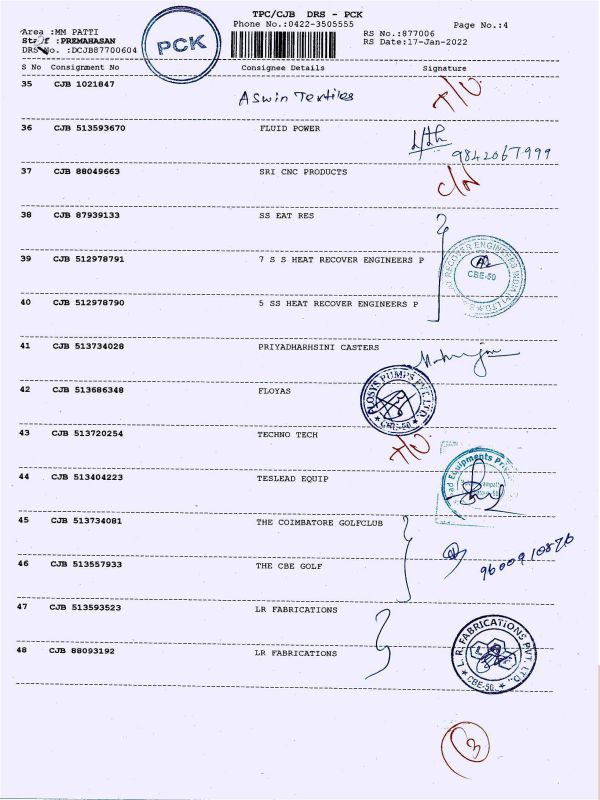 TPC/CJB DRS - PCK
Phone No.:0422-3505555 Page No.:4
Area :MM PATTI
Staff :PREMAHASAN
DRS No. :DCJB87700604
PCK
RS No.:877006
RS Date:17-Jan-2022
S No Consignment No Consignee Details Signature
35 CJB 1021847 Aswin Textiles
36 CJB 513593670 FLUID POWER 9842067999
37 CJB 88049663 SRI CNC PRODUCTS C/N
38 CJB 87939133 SS EAT RES
39 CJB 512978791 7 S S HEAT RECOVER ENGINEERS P
RECOVER ENGINEERS INDIA (P) LTD
CBE-50
40 CJB 512978790 5 SS HEAT RECOVER ENGINEERS P
41 CJB 513734028 PRIYADHARHSINI CASTERS
42 CJB 513686348 FLOYAS
FLOSYS PUMPS PVT. LTD.
CBE-50
43 CJB 513720254 TECHNO TECH
44 CJB 513404223 TESLEAD EQUIP
Equipments
45 CJB 513734081 THE COIMBATORE GOLFCLUB
46 CJB 513557933 THE CBE GOLF
47 CJB 513593523 LR FABRICATIONS
48 CJB 88093192 LR FABRICATIONS
L. R. FABRICATIONS PVT. LTD.,
CBE-50.
3